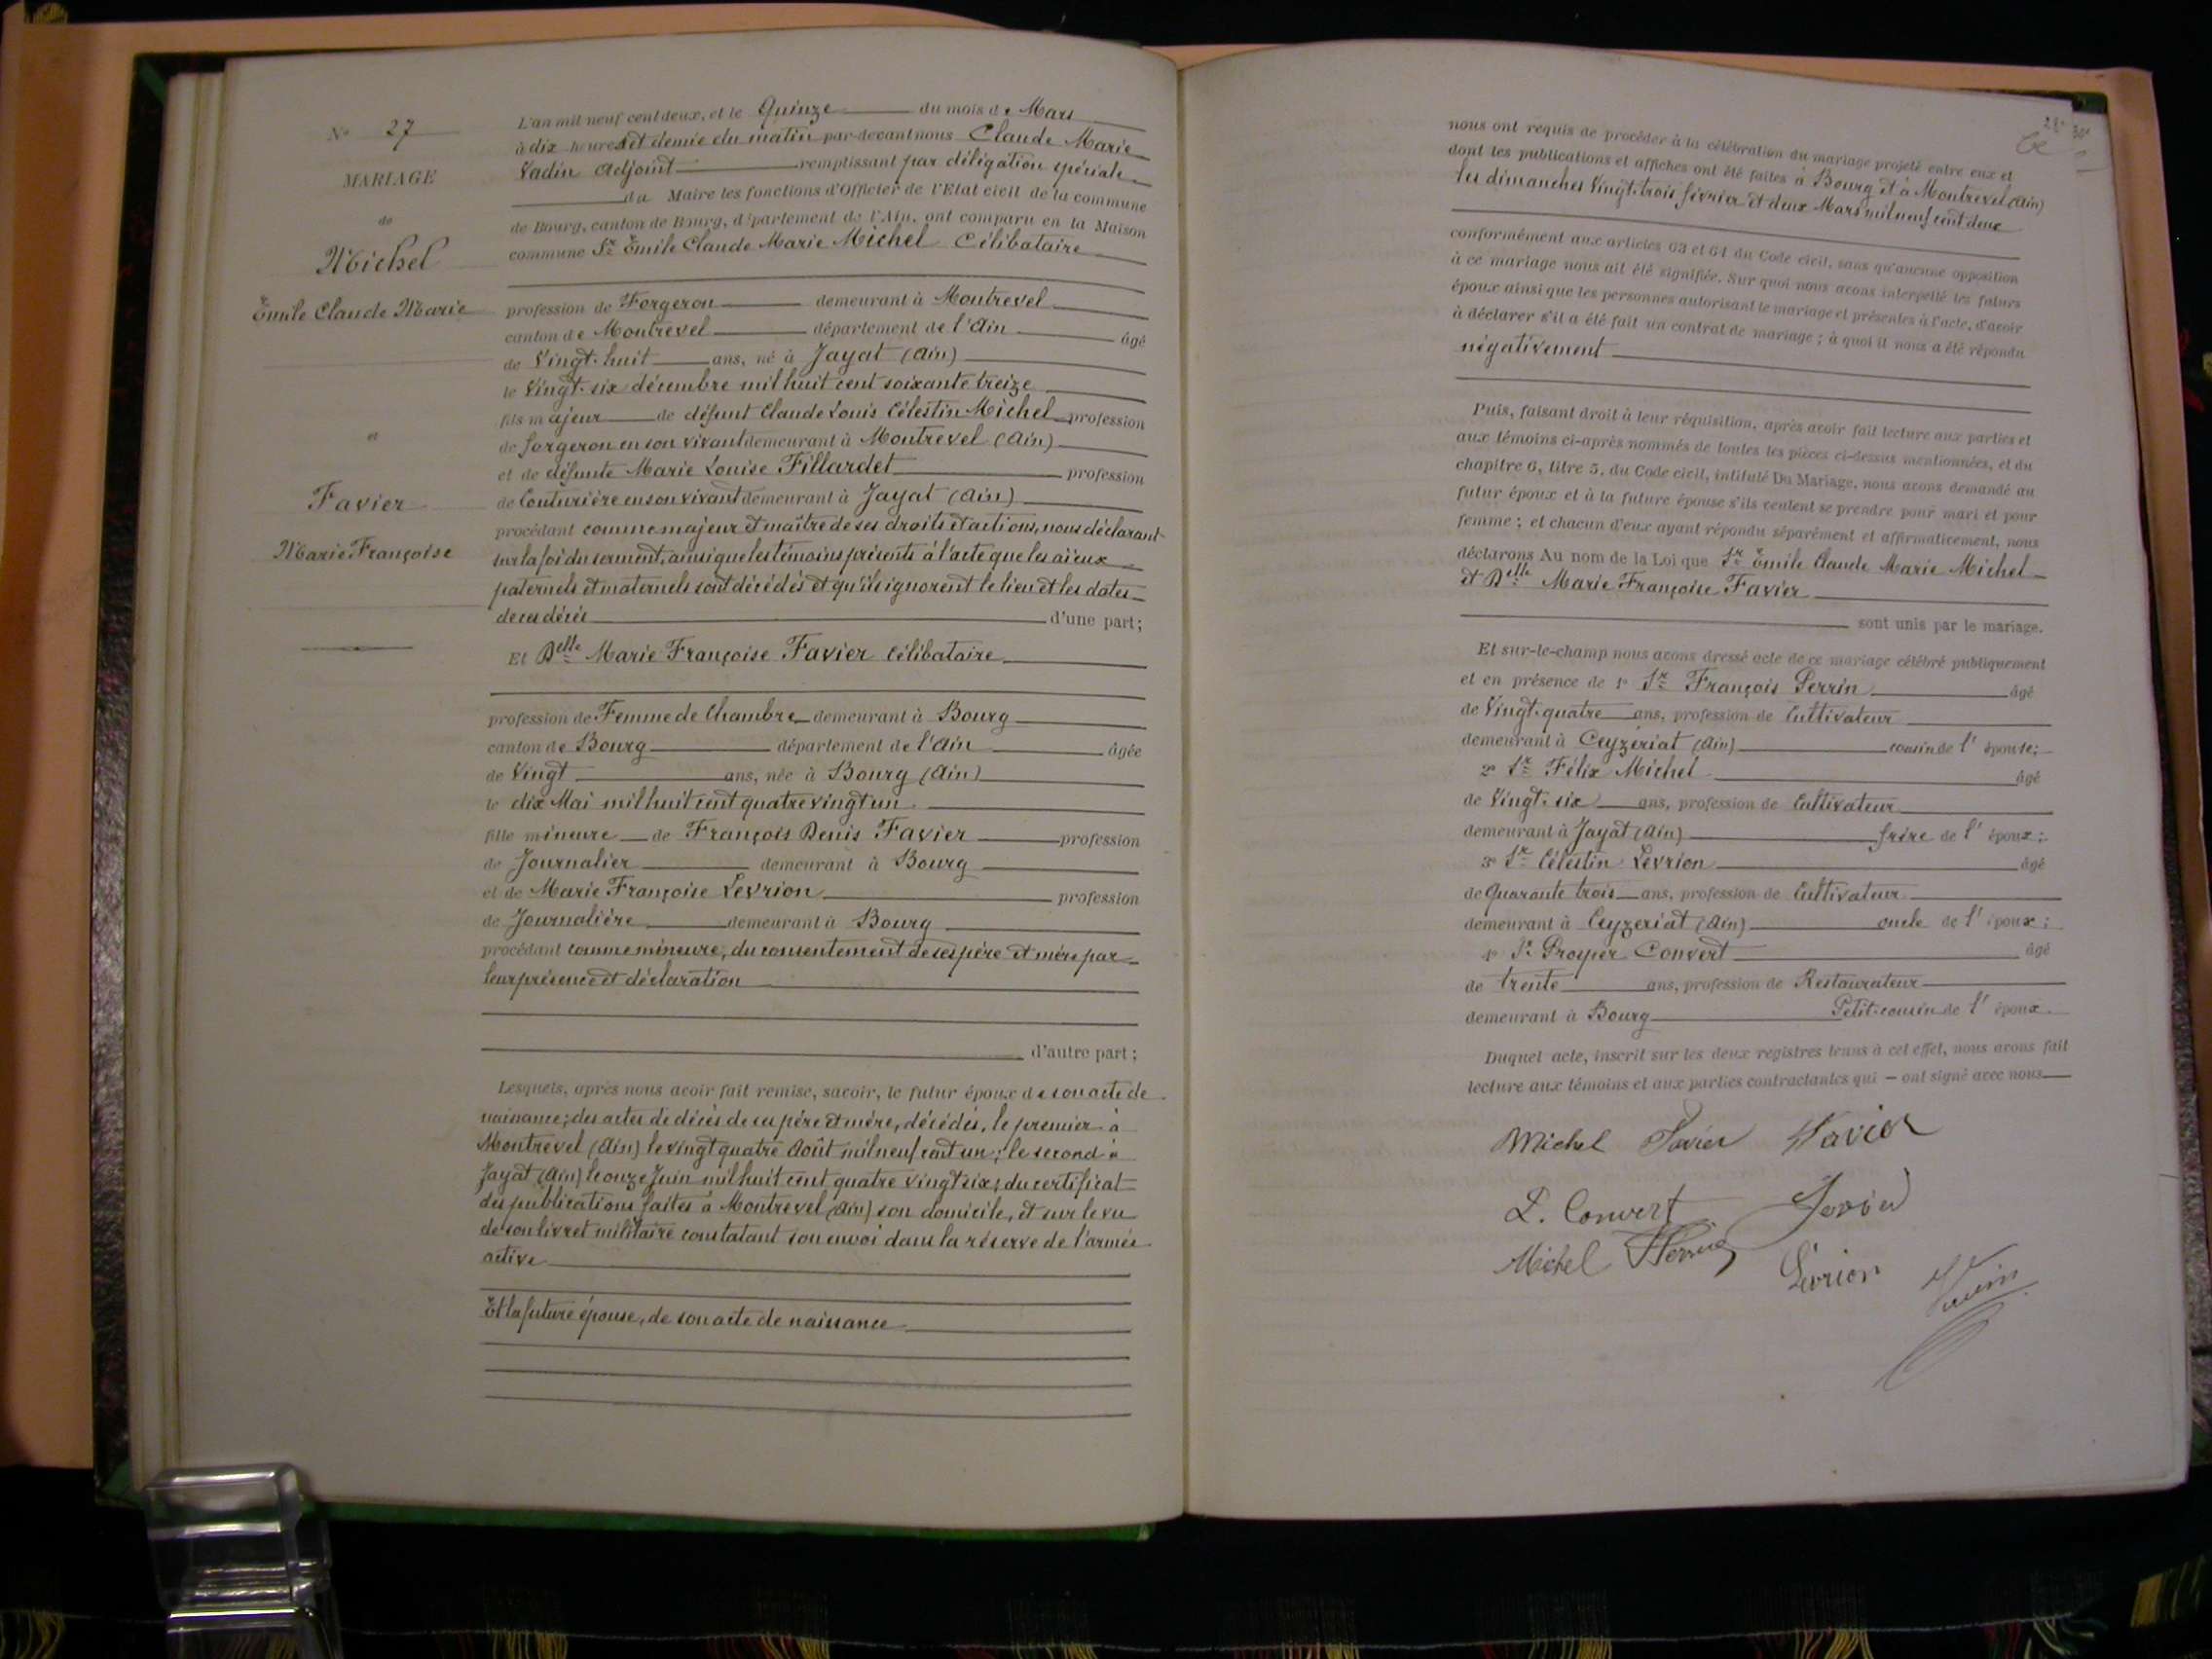 N° 27
MARIAGE
de
Michel
Emile Claude Marie
et
Favier
Marie Françoise
L'an mil neuf cent deux, et le Quinze du mois de Mars
à dix heures et demie du matin par-devant nous Claude Marie
Vadin Adjoint remplissant par délégation spéciale
du Maire les fonctions d'Officier de l'Etat civil de la commune
de Bourg, canton de Bourg, département de l'Ain, ont comparu en la Maison
commune Sr Emile Claude Marie Michel Célibataire
profession de Forgeron demeurant à Montrevel
canton de Montrevel département de l'Ain âgé
de Vingt-huit ans, né à Jayat (Ain)
le Vingt-six décembre mil huit cent soixante treize
fils majeur de défunt Claude Louis Célestin Michel profession
de forgeron en son vivant demeurant à Montrevel (Ain)
et de défunte Marie Louise Fillardet profession
de Couturière en son vivant demeurant à Jayat (Ain)
procédant comme majeur et maître de ses droits et actions, nous déclarant
sur la foi du serment, ainsi que les témoins présents à l'acte que les aïeux
paternels et maternels sont décédés et qu'ils ignorent le lieu et les dates
de ces décès d'une part;
Et Delle Marie Françoise Favier Célibataire
profession de Femme de Chambre demeurant à Bourg
canton de Bourg département de l'Ain âgée
de Vingt ans, née à Bourg (Ain)
le dix Mai mil huit cent quatre vingt un
fille mineure de François Denis Favier profession
de Journalier demeurant à Bourg
et de Marie Françoise Levrion profession
de Journalière demeurant à Bourg
procédant comme mineure, du consentement de ses père et mère par
leur présence et déclaration
d'autre part;
Lesquels, après nous avoir fait remise, savoir, le futur époux de son acte de
naissance; des actes de décès de ses père et mère, décédés, le premier à
Montrevel (Ain) le vingt quatre Août mil neuf cent un; le second à
Jayat (Ain) le onze Juin mil huit cent quatre vingt six; du certificat
des publications faites à Montrevel (Ain) son domicile, et sur le vu
de son livret militaire constatant son envoi dans la réserve de l'armée
active
Et la future épouse, de son acte de naissance
nous ont requis de procéder à la célébration du mariage projeté entre eux et
dont les publications et affiches ont été faites à Bourg et à Montrevel (Ain)
les dimanches Vingt-trois février et deux Mars mil neuf cent deux
conformément aux articles 63 et 64 du Code civil, sans qu'aucune opposition
à ce mariage nous ait été signifiée. Sur quoi nous avons interpellé les futurs
époux ainsi que les personnes autorisant le mariage et présentes à l'acte, d'avoir
à déclarer s'il a été fait un contrat de mariage; à quoi il nous a été répondu
négativement
Puis, faisant droit à leur réquisition, après avoir fait lecture aux parties et
aux témoins ci-après nommés de toutes les pièces ci-dessus mentionnées, et du
chapitre 6, titre 5, du Code civil, intitulé Du Mariage, nous avons demandé au
futur époux et à la future épouse s'ils veulent se prendre pour mari et pour
femme; et chacun d'eux ayant répondu séparément et affirmativement, nous
déclarons Au nom de la Loi que Sr Emile Claude Marie Michel
et Delle Marie Françoise Favier
sont unis par le mariage.
Et sur-le-champ nous avons dressé acte de ce mariage célébré publiquement
et en présence de 1° Sr François Perrin âgé
de Vingt-quatre ans, profession de Cultivateur
demeurant à Ceyzériat (Ain) cousin de l'épouse;
2° Sr Félix Michel âgé
de Vingt-six ans, profession de Cultivateur
demeurant à Jayat (Ain) frère de l'époux;
3° Sr Célestin Levrion âgé
de Quarante trois ans, profession de Cultivateur
demeurant à Ceyzeriat (Ain) oncle de l'époux;
4° Sr Prosper Convert âgé
de trente ans, profession de Restaurateur
demeurant à Bourg Petit-cousin de l'époux
Duquel acte, inscrit sur les deux registres tenus à cet effet, nous avons fait
lecture aux témoins et aux parties contractantes qui - ont signé avec nous
Michel Favier Favier
P. Convert
Michel
Levrion